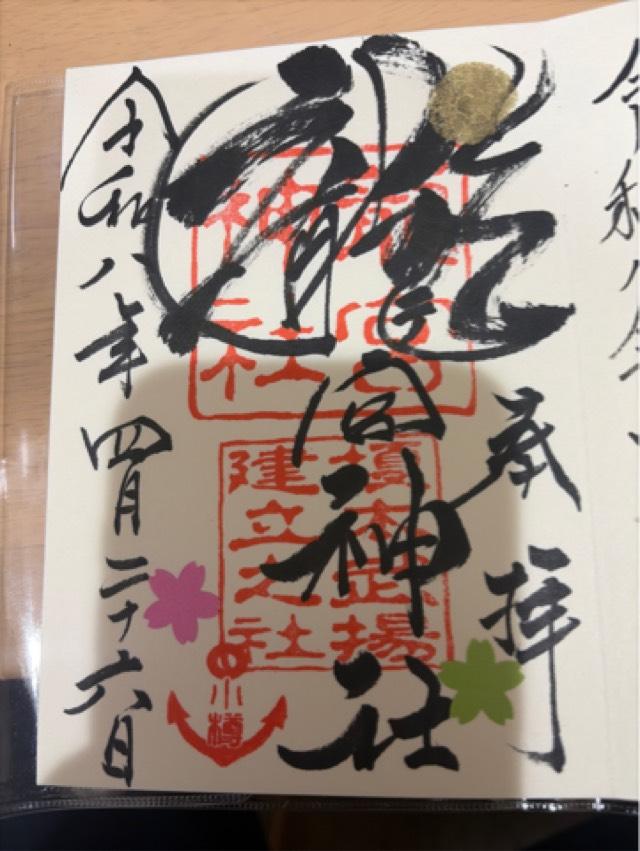 奉拝
龍宮神社
令和八年四月二十六日
龍宮
神社
榎本武揚
建立之社
小樽
令和八年